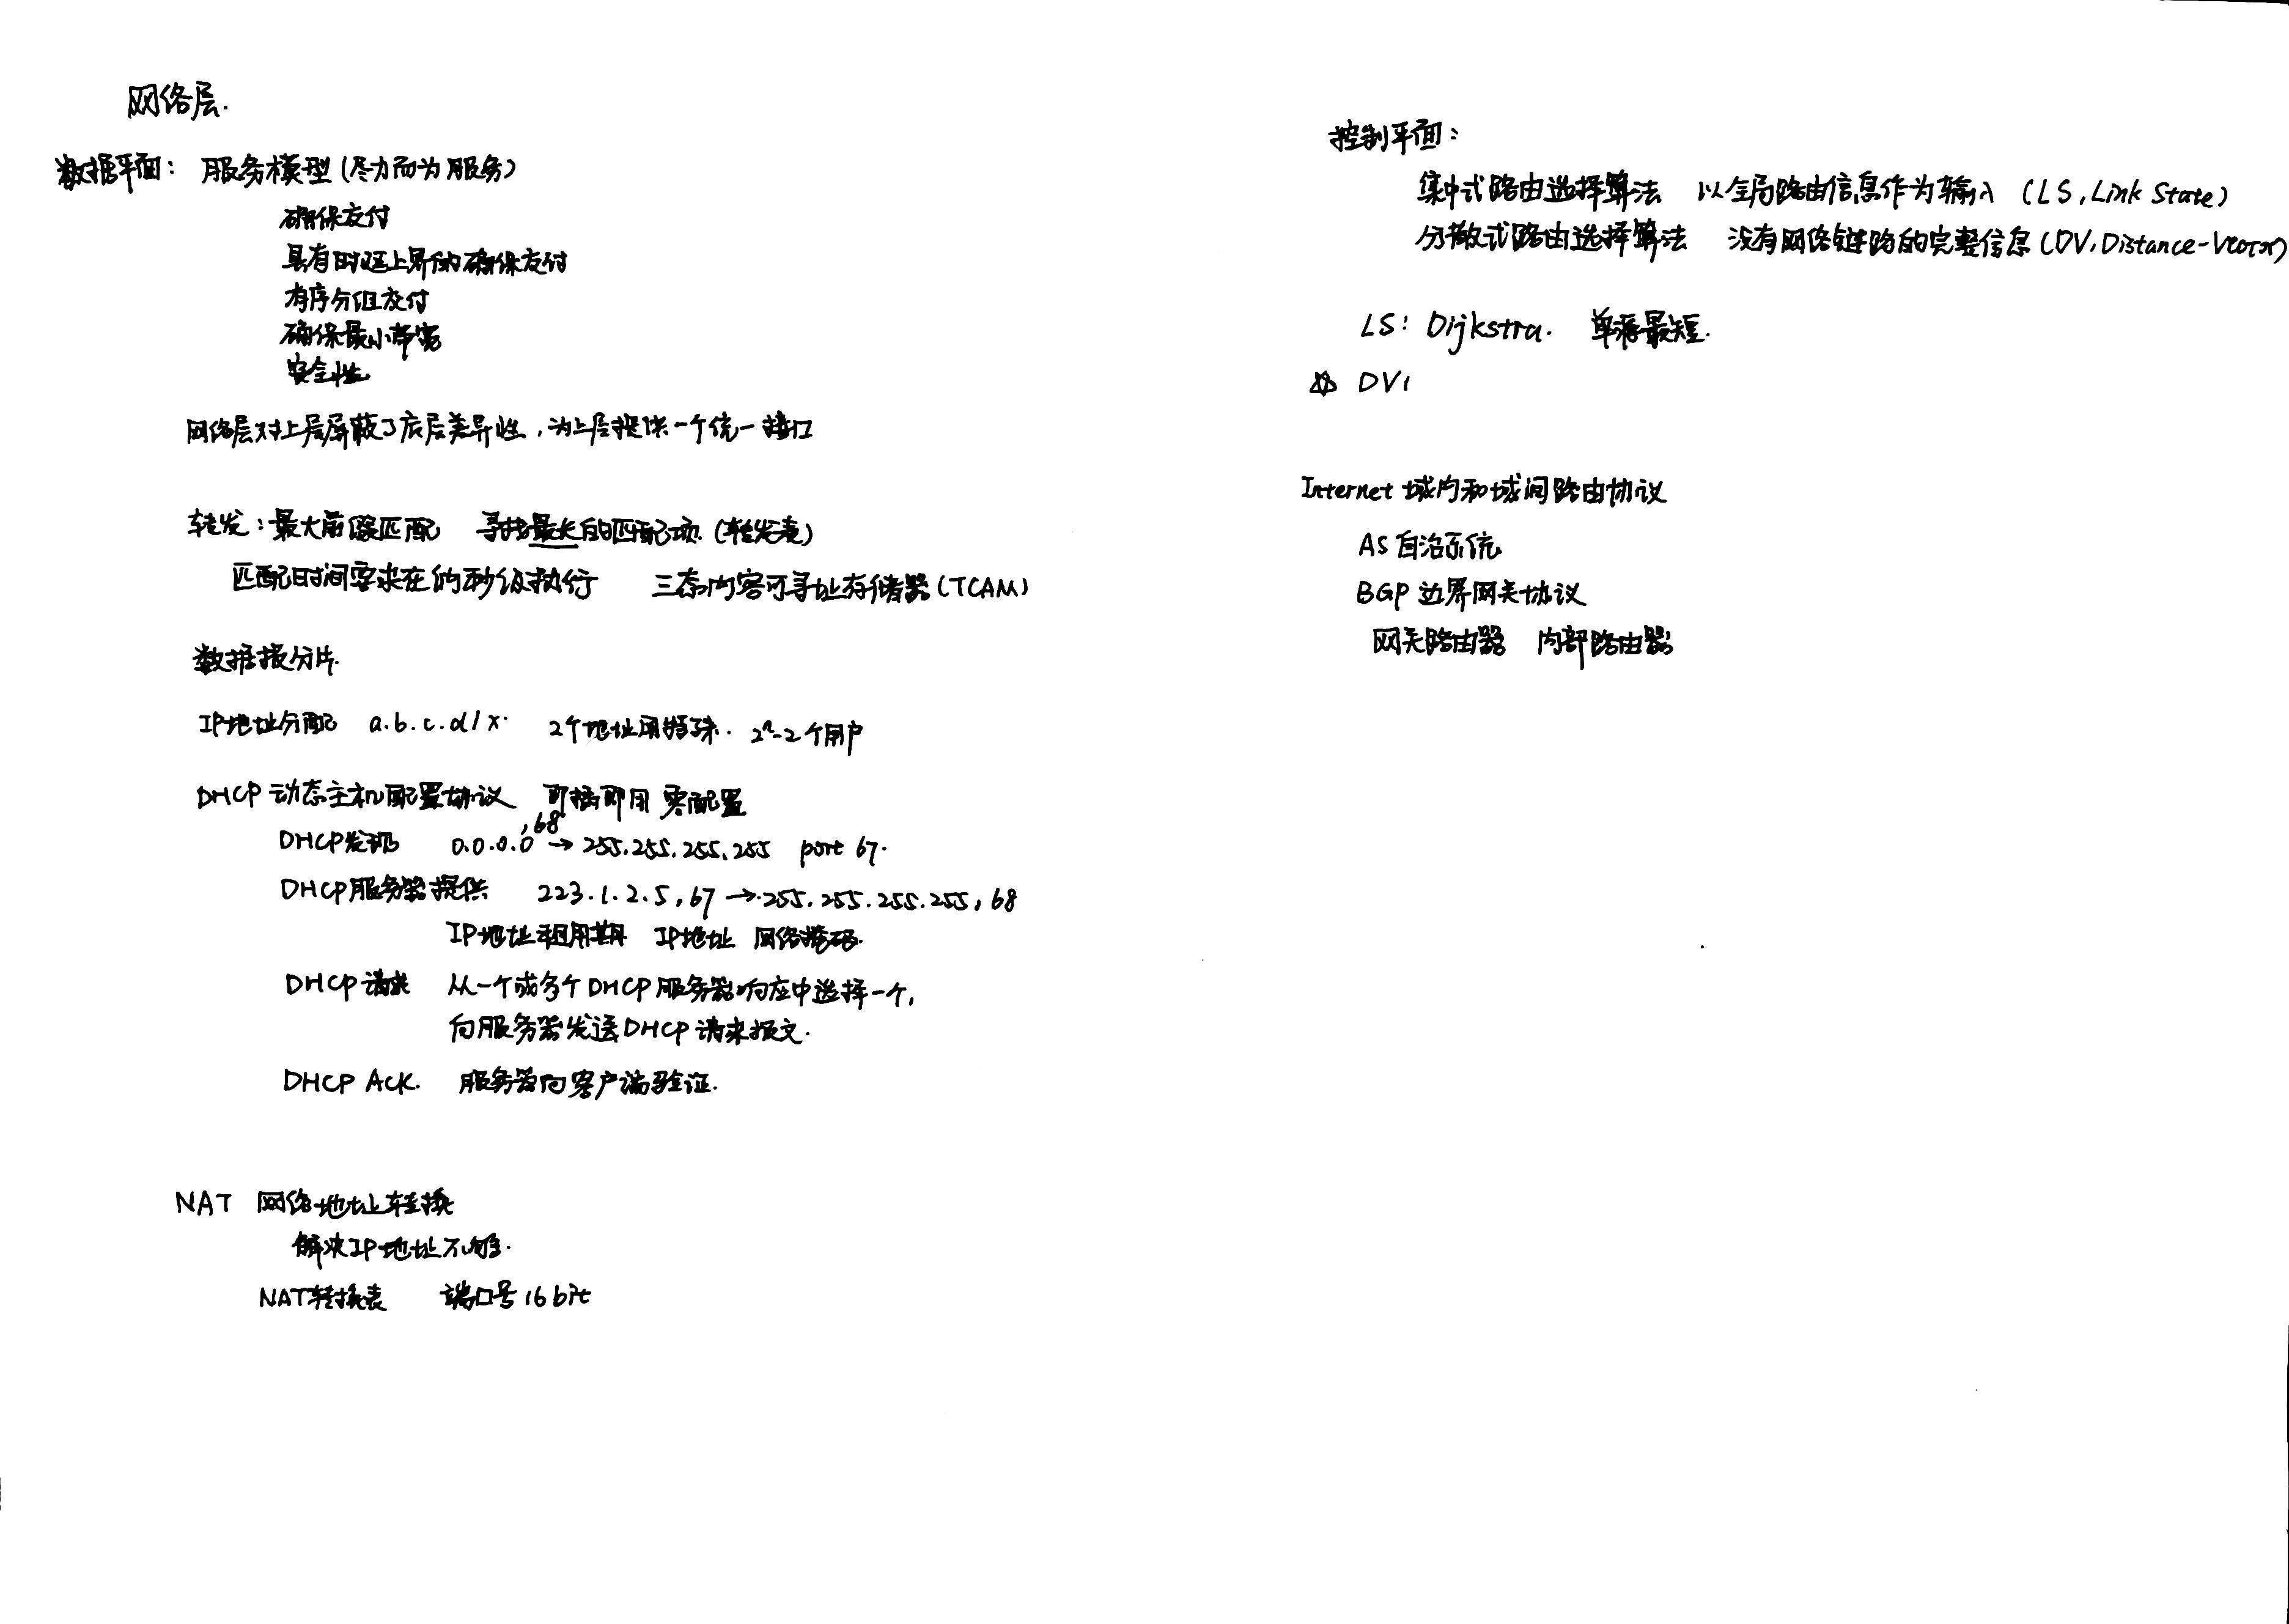 网络层.
数据平面: 服务模型(尽力而为服务)
确保交付
具有时延上界的确保交付
有序分组交付
确保最小带宽
安全性
网络层对上层屏蔽了底层差异性,为上层提供一个统一接口
转发:最大前缀匹配 寻找最长的匹配项(转发表)
匹配时间要求在纳秒级执行 三态内容可寻址存储器(TCAM)
数据报分片.
IP地址分配 a.b.c.d/x. 2个地址用特殊. 2ⁿ-2个用户
DHCP 动态主机配置协议 即插即用 零配置
DHCP发现 0.0.0.0,68 → 255.255.255.255 port 67.
DHCP服务器提供 223.1.2.5,67 → 255.255.255.255,68
IP地址租用期 IP地址 网络掩码.
DHCP 请求 从一个或多个DHCP服务器响应中选择一个,
向服务器发送DHCP请求报文.
DHCP ACK. 服务器向客户端验证.
NAT 网络地址转换
解决IP地址不够.
NAT转换表 端口号16bit
控制平面:
集中式路由选择算法 以全局路由信息作为输入 (LS,Link State)
分散式路由选择算法 没有网络链路的完整信息(DV,Distance-Vector)
LS: Dijkstra. 单源最短.
☆ DV:
Internet 域内和域间路由协议
AS自治系统
BGP 边界网关协议
网关路由器 内部路由器